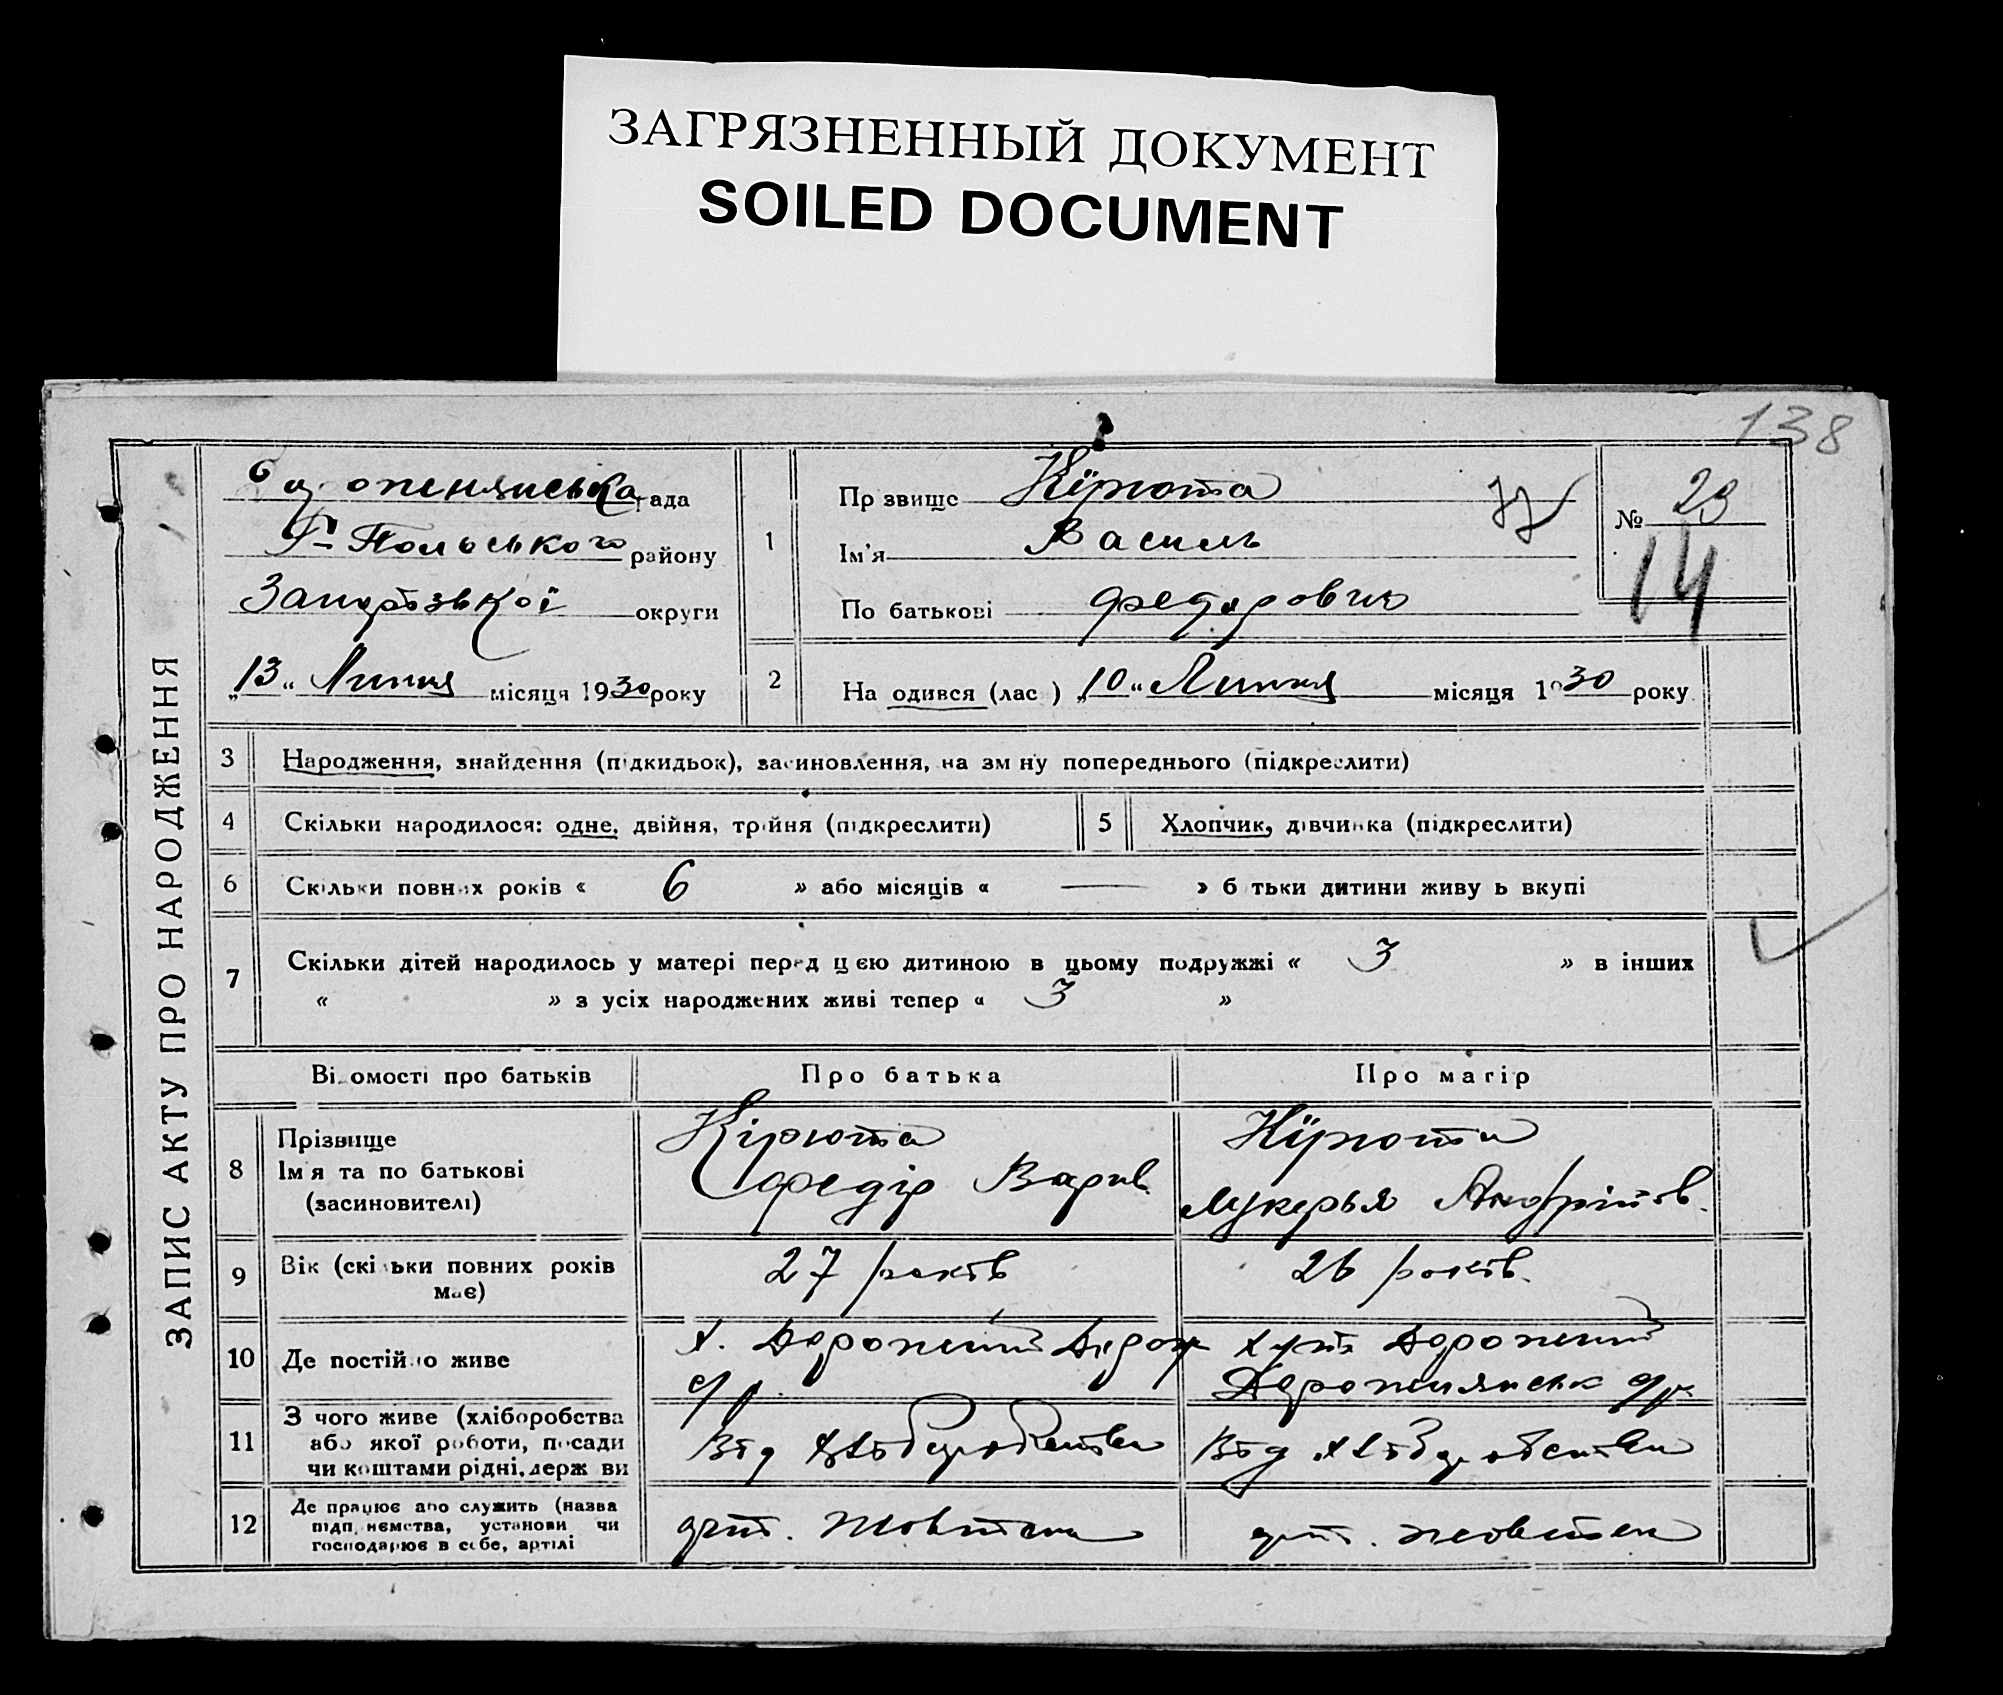 ЗАГРЯЗНЕННЫЙ ДОКУМЕНТ
SOILED DOCUMENT
138
ЗАПИС АКТУ ПРО НАРОДЖЕННЯ
рада
Г-Польського району
Запорізької округи
„13“ Липня місяця 1930 року
1
Прзвище Кірюта
Ім'я Василь
По батькові Федорович
№ 23
14
2
Народився (лас) „10“ Липня місяця 1930 року
3 Народження, знайдення (підкидьок), засиновлення, на зміну попереднього (підкреслити)
4 Скільки народилося: одне, двійня, трійня (підкреслити)
5 Хлопчик, дівчинка (підкреслити)
6 Скільки повних років « 6 » або місяців « — » батьки дитини живуть вкупі
7 Скільки дітей народилось у матері перед цією дитиною в цьому подружжі « 3 » в інших
« » з усіх народжених живі тепер « 3 »
Відомості про батьків Про батька Про матір
8 Прізвище
Ім'я та по батькові
(засиновителі)
Кірюта
Федір
Кірюта
Лукерья Андріїов.
9 Вік (скільки повних років
має)
27 років
26 років.
10 Де постійно живе
х.
с/р.
хут.
с/р.
11 З чого живе (хліборобства
або якої роботи, посади
чи коштами рідні, держави
Від хліборобства
Від хліборобства
12 Де працює або служить (назва
підприємства, установи чи
господарює в себе, артілі
арт. Жовтень
арт. Жовтень